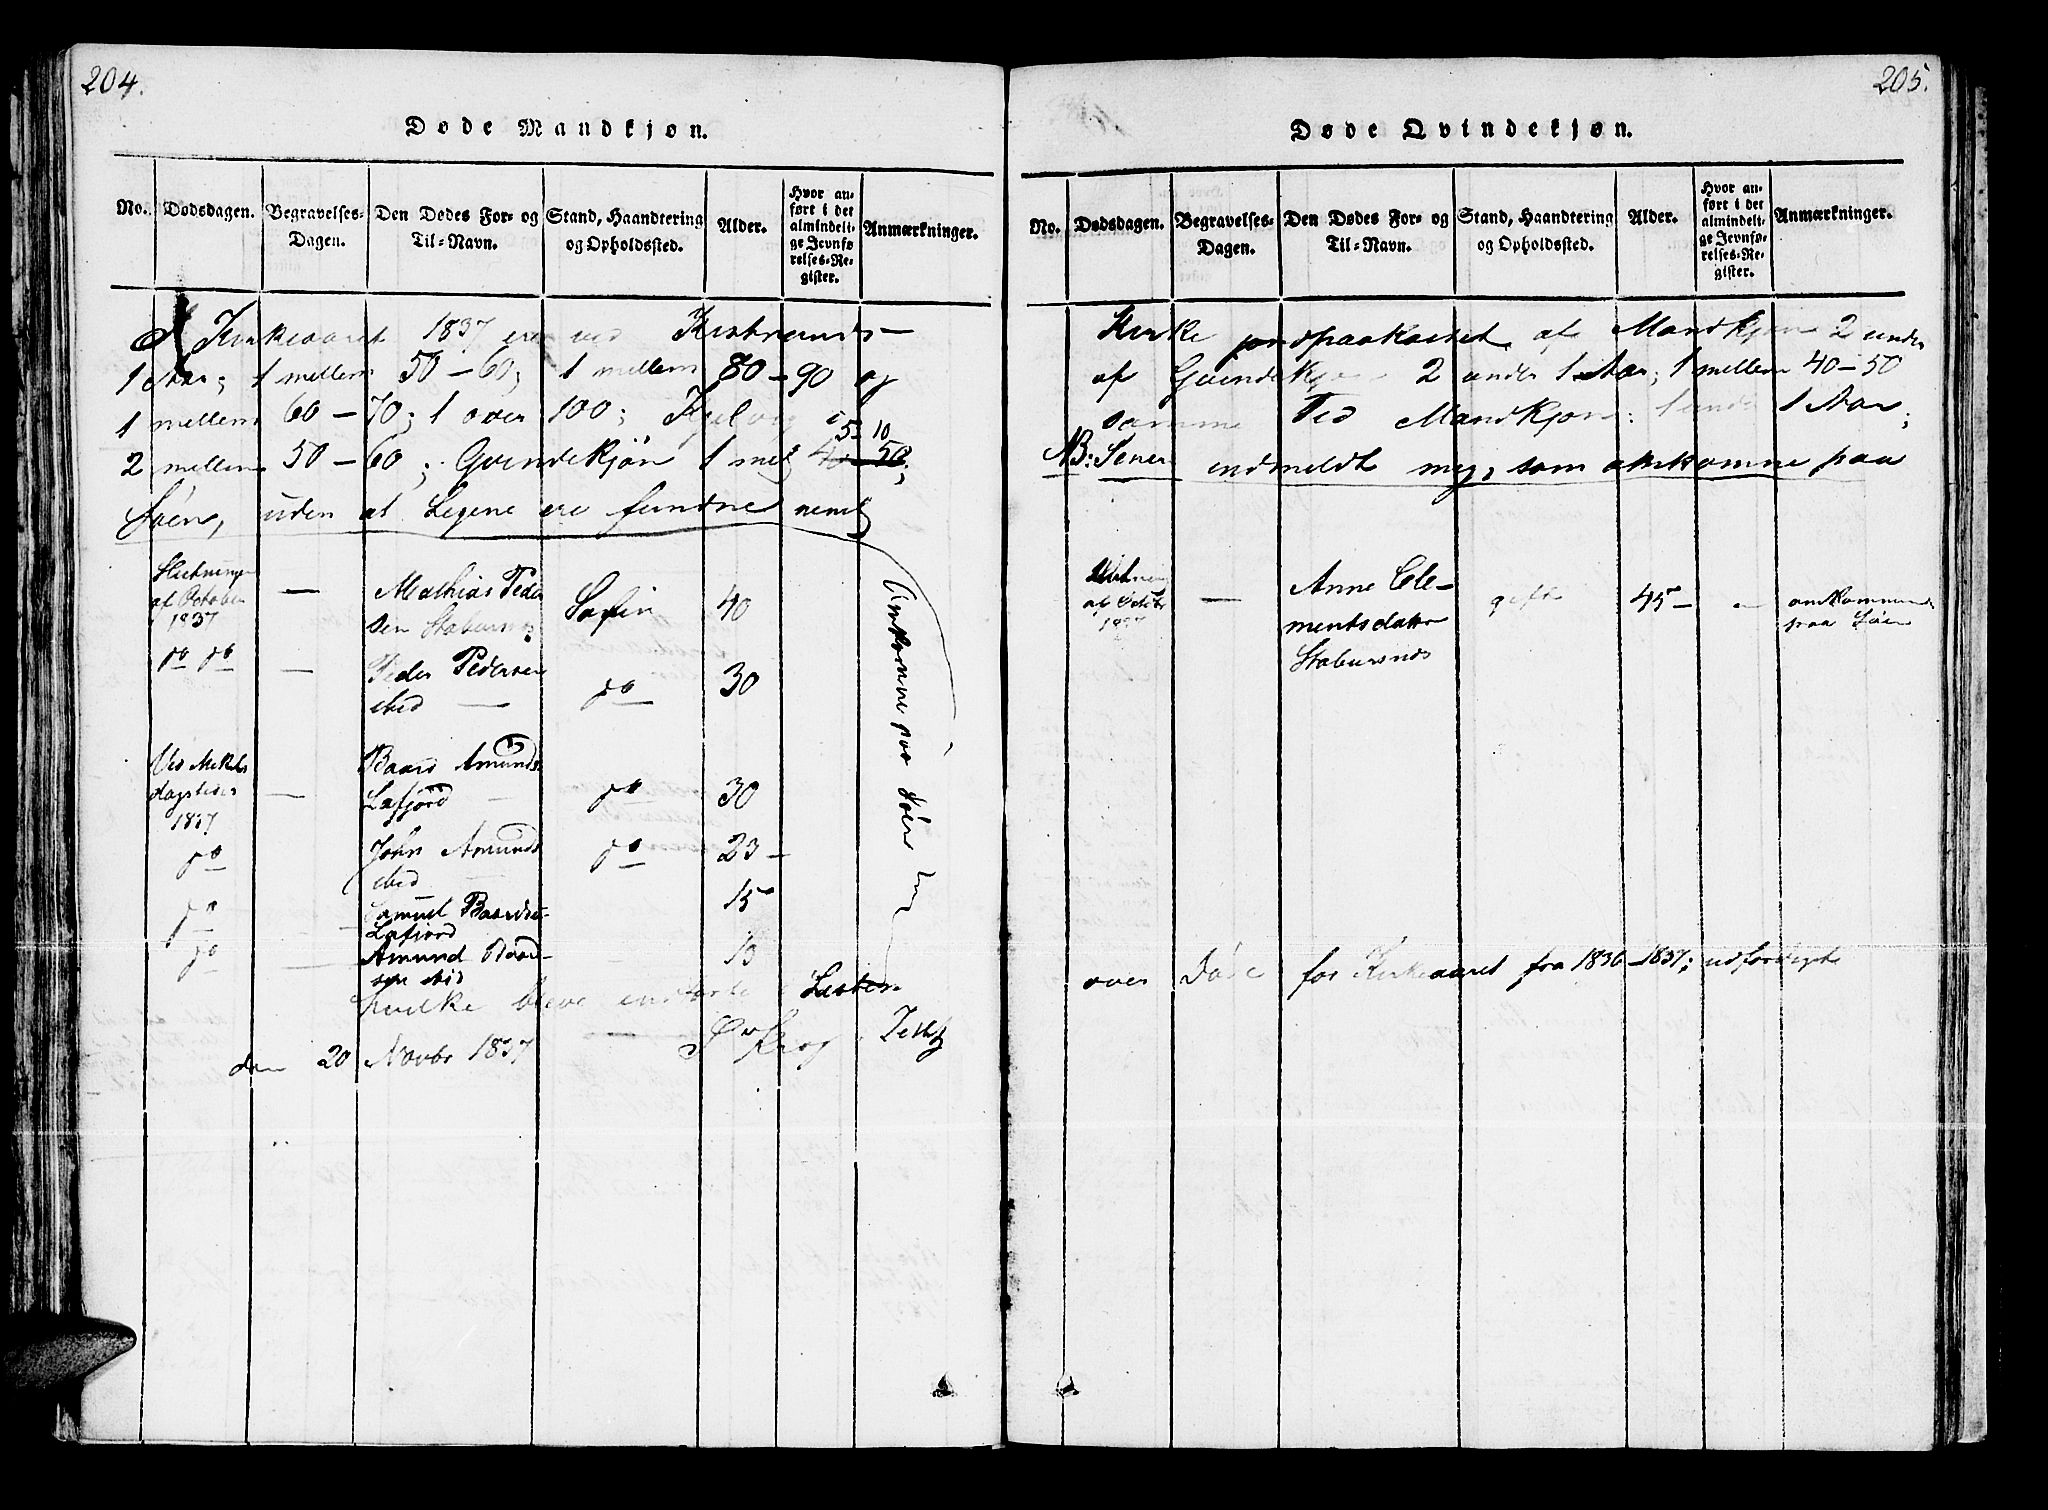 204.
Døde Mandkjøn.
No. Dødsdagen. Begravelses-Dagen. Den Dødes For- og Til-Navn. Stand, Haandtering og Opholdssted. Alder. Hvor anført i det almindelige Jevnførelses-Register. Anmærkninger.
I Kirkeaaret 1837 ere ved Kistrands
1 Aar; 1 mellem 50 – 60; 1 mellem 80 – 90 og
1 mellem 60 – 70; 1 over 100; Kjelvig
5 10
2 mellem 50 – 60; Qvindekjön 1 mel 40 50;
Søen, uden at Legene ere fundne
Slutningen af October 1837 — Mathias Pedersen Stabursnæs 40
do do — Peder Pedersen ibid — do 30
Ved Mikkelsdagstider 1837 — Baard Amunds. Lafjord — do 30
do John Amunds ibid do 23 –
do — Samuel Baardsen Lafjord 15
do — Amund Baardsen ibid 13
Omkomne paa Søen
hvilke bleve Listen
den 20 Novbr 1837 Krog
205.
Døde Qvindekjøn.
No. Dødsdagen. Begravelses-Dagen. Den Dødes For- og Til-Navn. Stand, Haandtering og Opholdssted. Alder. Hvor anført i det almindelige Jevnførelses-Register. Anmærkninger.
Kirke jordpaakastet af Mandkjøn 2 under
af Qvindekjøn 2 under 1 Aar; 1 mellem 40 – 50
samme Tid Mandkjøn: 1 under 1 Aar;
NB: Senere indmeldt mig, som omkomne paa
Slutning af Octbr 1837 — Anne Clementsdatter Stabursnæs gift 45 – – omkommen paa Søen
over Døde for Kirkeaaret fra 1836 – 1837; udfærdigt